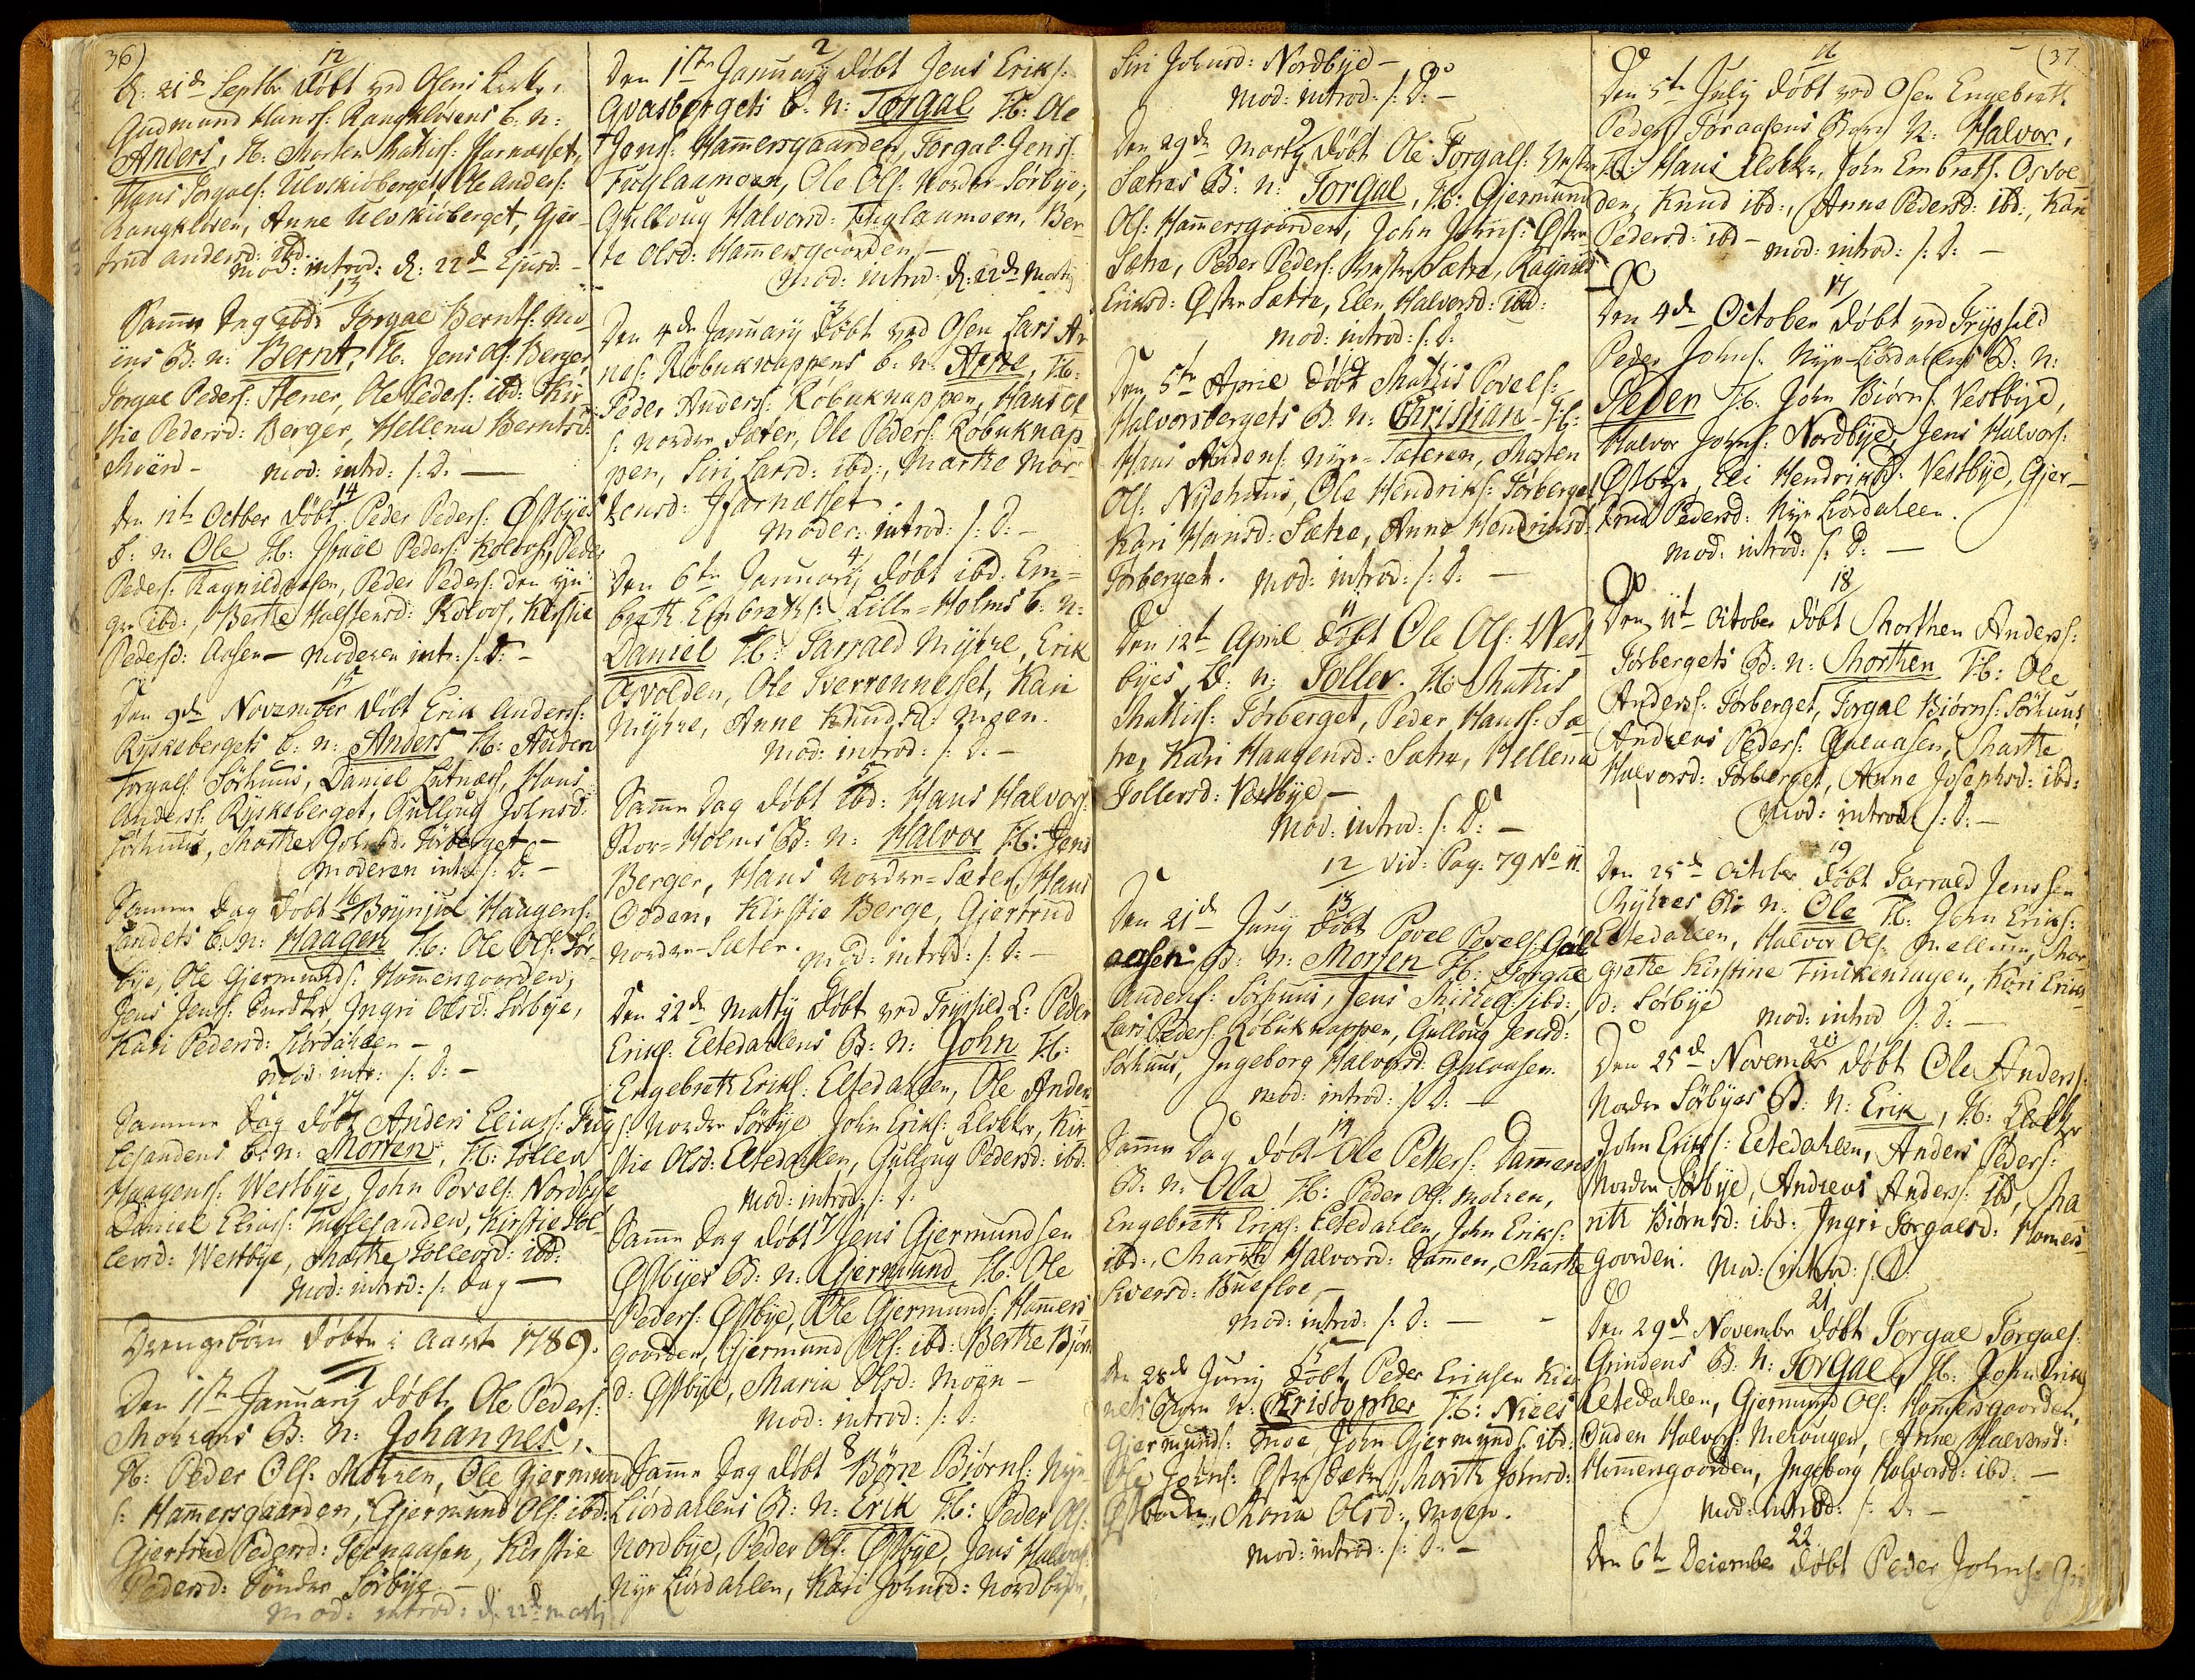 36)
12
d: 21de Septbr døbt ved Osens Kirke,
Gudmund Hanss: Rangkløvens b: n:
Anders, F: Morten Mathiss: Furnæsset,
Hans Torgals: Ulvskiøberget, Ole Anders:
Rangkløven, Anne Ulvskiøberget, Gjer-
trud Andersd: ibd:
Mod: introd: d: 22de Ejusd: -
13
Samme Dag ibd: Torgal Bernts: Mo-
ens B: n: Bernt, F: Jens Ols: Berger,
Torgal Peders: Stener, Ole Peders: ibd: Kir-
stie Pedersd: Berger, Hellena Berntsd:
Moen - Mod: introd: s: D: -
14
den 12te Octber døbt Peder Peders: Østbyes
B: n: Ole F: Peders: Kolvos, Peder
Peders: Ragnildaasen, Peder Peders: den yn-
gre ibd:, Berthe Kolvos, Kirstie
Pedersd: Aasen - Moderen intr: s: D: -
15
den 9de November døbt Erik Anders:
Ryskebergets b: n: Anders F: Auden
Torgals: Sørhuus, Daniel Lutnæs, Hans
Anders: Ryskeberget, Gulloug Johnsd:
Sørhuus, Marthe Johnsd: Tørberget -
Moderen intr: s: D: -
16
Samme Dag døbt Brynjul Haagens:
Landets b: n: Haagen F: Ole Ols: Sør-
bye, Ole Gjermunds: Hammersgaarden,
Jens Jens: Ingri Olsd: Sørbye,
Kari Pedersd: Liørdahlen -
Mod: intr: s: D: -
17
Samme Dag døbt Anders Elias: Fug-
lesandens b: n: Morten, F: Toller
Haagens: Westbye, John Povels: Nordbye
Daniel Elias: Fuglesanden, Kirstie Tol-
lersd: Westbye, Marthe Tollersd: ibd:
Mod: introd: s: Dag -
Drengebørn døbte i Aaret 1789.
1
Den 1ste January døbt Ole Peders:
Mohrens B: N: Johannes,
F: Peder Ols: Mohren, Ole Gjermund
s: Hammersgaarden, Gjermund Ols: ibd:
Gjertrud Pedersd: Tegnaasen, Kirstie
Pedersd: Søndre Sørbye -
Mod: introd: d: 22de Martj
2
Den 1ste January døbt Jens Eriks:
Qvasbergets b: N: Torgal F: Ole
Jens: Hammersgaarden, Torgal Jens:
Fuglaamoen, Ole Ols: Nordre Sørbye,
Gulloug Halvorsd: Fuglaamoen, Ber-
te Olsd: Hammersgoorden -
Mod: introd: d: 22de Martj
3
Den 4de January døbt ved Osen Lars Ar
nes: Røbuknappens b: n: Arne, F:
Peder Anders: Røbuknappen, Hans Ol
s: Nordre Sæter, Ole Peders: Røbuknap
pen, Siri Larsd: ibd:, Marthe Mor-
tensd: Furnæsset.
Moder: introd: s: D: -
4
Den 6te January døbt ibd: Em=
breth Embreths: Lille=Holms b: n:
Daniel F: Tarrald Myhre, Erik
Osvolden, Ole Tverrennesset, Kari
Myhre, Anne Knudsd: Moen.
Mod: introd: s: D: -
5
Samme Dag døbt ibd: Hans Halvors:
Stor=Holms B: n: Halvor F: Jens
Berger, Hans Nordre=Sæter, Hans
Odden, Kirstie Berge, Gjertrud
Nordre-Sæter. Mod: introd: s: D: -
Den 22de Martj døbt ved Trysild K: Peder
Eriks: Eltedahlens B: N: John F:
Engebreth Eriks: Eltedahlen, Ole Anders
s: Nordre Sørbye John Eriks: Klokker, Kir
stie Olsd: Eltedahlen, Gulloug Pedersd: ibd:
Mod: introd: s: D.
7
Samme Dag døbt Jens Gjermundsen
Østbyes B: n: Gjermund F: Ole
Peders: Østbye, Ole Gjermunds: Hammers-
goorden, Gjermund Ols: ibd: Berthe Bjørn
d: Østbye, Maria Olsd: Moen -
Mod: introd: s: D:
8
Samme Dag døbt Børre Biørns: Nye
Liørdahlens B: n: Erik F: Peder Ols:
Nordbye, Peder Ols: Østbye, Jens Halvors:
Nye Liørdahlen, Kari Johnsd: Nordbye,
Siri Johnsd: Nordbye -
Mod: introd: s: D: -
9
Den 29de Martj døbt Ole Torgals: Vestre
Sætres B: n: Torgal, F: Gjermund
Ols: Hammersgoorden, John Johns: Østre
Sætre, Peder Peders: Vestre Sætre, Ragnild
Eriksd: Østre Sætre, Elen Halvorsd: ibd:
Mod: introd: s: D:
Den 5te April døbt Mathis Povels:
Halvorsbergets B: n: Christian - F:
Hans Audens: Nye=Sæteren, Morten
Ols: Nyehuus, Ole Hendriks: Tørberget
Kari Hansd: Sætre, Anne Hendriksd:
Tørberget. Mod: introd: s: D: -
11
Den 12te April døbt Ole Ols: West
byes B: n: Toller. F: Mathis
Mathis: Tørberget, Peder Hans: Sæ
tre, Kari Haagensd: Sætre, Hellena
Tollersd: Vestbye -
Mod: introd: s: D: -
12 vid: Pag: 79 No 11.
13
Den 21de Juny døbt Povel Povels: Gal
aasen B: n: Morten F: Torgal
Audens: Sørhuus, Jens ibd:,
Lars Peders: Røbuknappen, Gulloug Jensd:
Sørhuus, Ingeborg Halvorsd: Galaasen.
Mod: introd: s: D: -
14
Samme Dag døbt Ole Petters: Dammens
B: n: Ola F: Peder Ols: Mohren,
Engebreth Eriks: Eltedahlen, John Eriks:
ibd:, Marthe Halvorsd: Dammen, Marthe
Siversd: -
Mod: introd: s: D: - -
15
den 28de Juny døbt Peder Eriksen Kier
nets Barn N: Christopher F: Niels
Gjermunds: Moe, John Gjermunds: ibd:
Ole Johns: Østre Sætre, Marth Johnsd:
Maria Olsd: Moen.
Mod: introd: s: D: -
(37
16
Den 5te July døbt ved Osen Engebreth
Peders: Føraasens Barn N: Halvor,
F: Hans Klokker, John Embrets: Osvol
den, Knud ibd:, Anne Pedersd: ibd:, Kari
Pedersd: ibd - Mod: introd: s: D: -
17
Den 4de October døbt ved Trysild
Peder Johns: Nye-Liørdahlens B: n:
Peder F: John Biørns: Vestbye,
Halvor Johns: Nordbye, Jens Halvors:
Østbye, Eli Hendriksd: Vestbye, Gjer-
trud Pedersd: Nye Liørdahlen.
Mod: introd: s: D: -
18
Den 11te October døbt Morthen Anders:
Tørbergets B: n: Morthen F: Ole
Anders: Tørberget, Torgal Biørns: Sørhuus,
Andreas Peders: Galaasen, Marthe
Halvorsd: Tørberget, Anne Josephsd: ibd:
Mod: introd: s: D: -
19
Den 25de Octbr døbt Tarrald Jenssen
Myhres B: n: Ole F: John Eriks:
Eltedahlen, Halvor Ols: Mar
grethe Kirstine Finckenhagen, Kari Eriks
d: Sørbye Mod: introd s: D: -
20
Den 25de November døbt Ole Anders:
Nordre Sørbyes B: N: Erik, F: Klokker
John Eriks: Eltedahlen, Anders Peders:
Nordre Sørbye, Andreas Anders: ibd, Ma
rith Biørnsd: ibd: Ingri Torgalsd: Hamers-
goorden. Mod: introd: s: D:
21
Den 29de Novembr døbt Torgal Torgals:
Grindens B: N: Torgal, F: John Eriks
Eltedahlen, Gjermund Ols: Hammersgoorden,
Ouden Halvors: Anne Halvorsd:
Hammersgoorden, Ingeborg Halvorsd: ibd. -
Mod: introd: s: D: -
22
Den 6te December døbt Peder Johns: